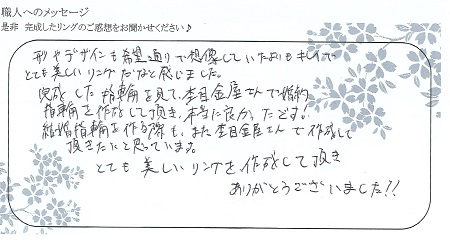 職人へのメッセージ
是非 完成したリングのご感想をお聞かせください♪
形やデザインも希望通りで想像していたよりもキレイで
とても美しいリングだなと感じました。
完成した指輪を見て、杢目金屋さんで婚約
指輪を作成して頂き、本当に良かったです。
結婚指輪を作る際も、また杢目金屋さんで作成して
頂きたいと思っています。
とても美しいリングを作成して頂き
ありがとうございました!!